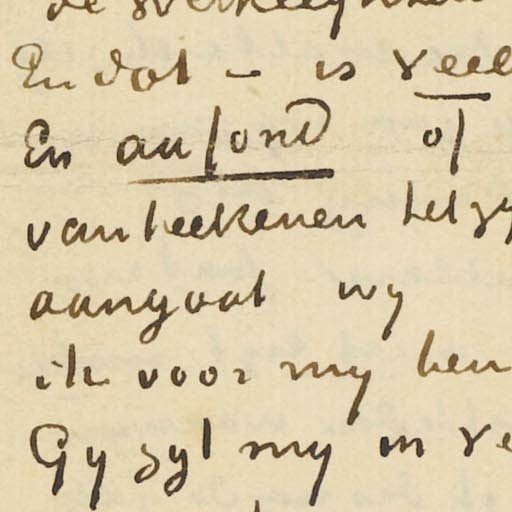 de
En dat – is veel
En au fond of
van teekenen het zy
aangaat wy
ik voor my ben
Gy zyt my in ve